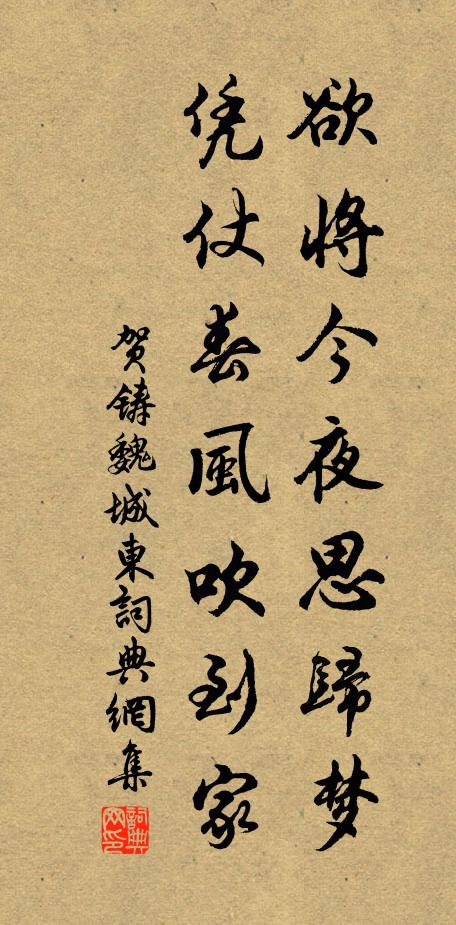 欲将今夜思歸梦
凭仗春風吹到家
贺鑄魏城東詞典網集
詞典网印